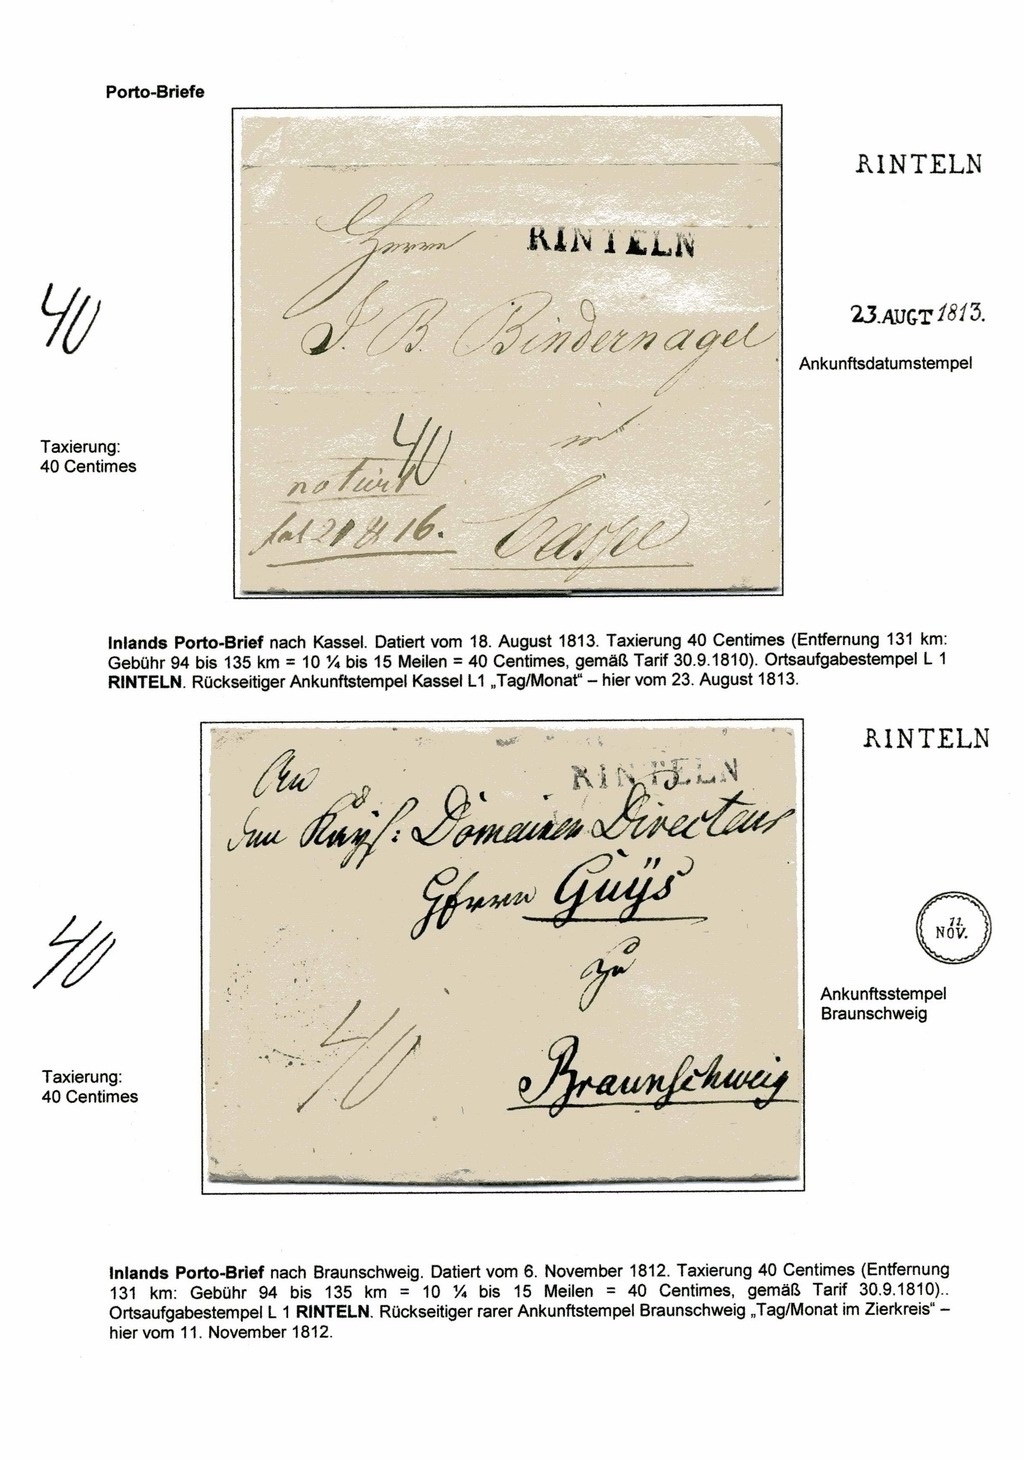 Porto-Briefe
RINTELN
Herrn
RINTELN
J. B. Bindernagel
23.AUGT 1813.
Ankunftsdatumstempel
40
Taxierung:
40 Centimes
40
in
notirt
21 16.
Cassel
Inlands Porto-Brief nach Kassel. Datiert vom 18. August 1813. Taxierung 40 Centimes (Entfernung 131 km:
Gebühr 94 bis 135 km = 10 ¼ bis 15 Meilen = 40 Centimes, gemäß Tarif 30.9.1810). Ortsaufgabestempel L 1
RINTELN. Rückseitiger Ankunftstempel Kassel L1 „Tag/Monat“ – hier vom 23. August 1813.
RINTELN
RINTELN
An
den Kayß: Domainen Directeur
Herrn Guÿs
zu
Braunschweig
40
11.
NOV.
Ankunftsstempel
Braunschweig
40
Taxierung:
40 Centimes
Inlands Porto-Brief nach Braunschweig. Datiert vom 6. November 1812. Taxierung 40 Centimes (Entfernung
131 km: Gebühr 94 bis 135 km = 10 ¼ bis 15 Meilen = 40 Centimes, gemäß Tarif 30.9.1810)..
Ortsaufgabestempel L 1 RINTELN. Rückseitiger rarer Ankunftstempel Braunschweig „Tag/Monat im Zierkreis“ –
hier vom 11. November 1812.